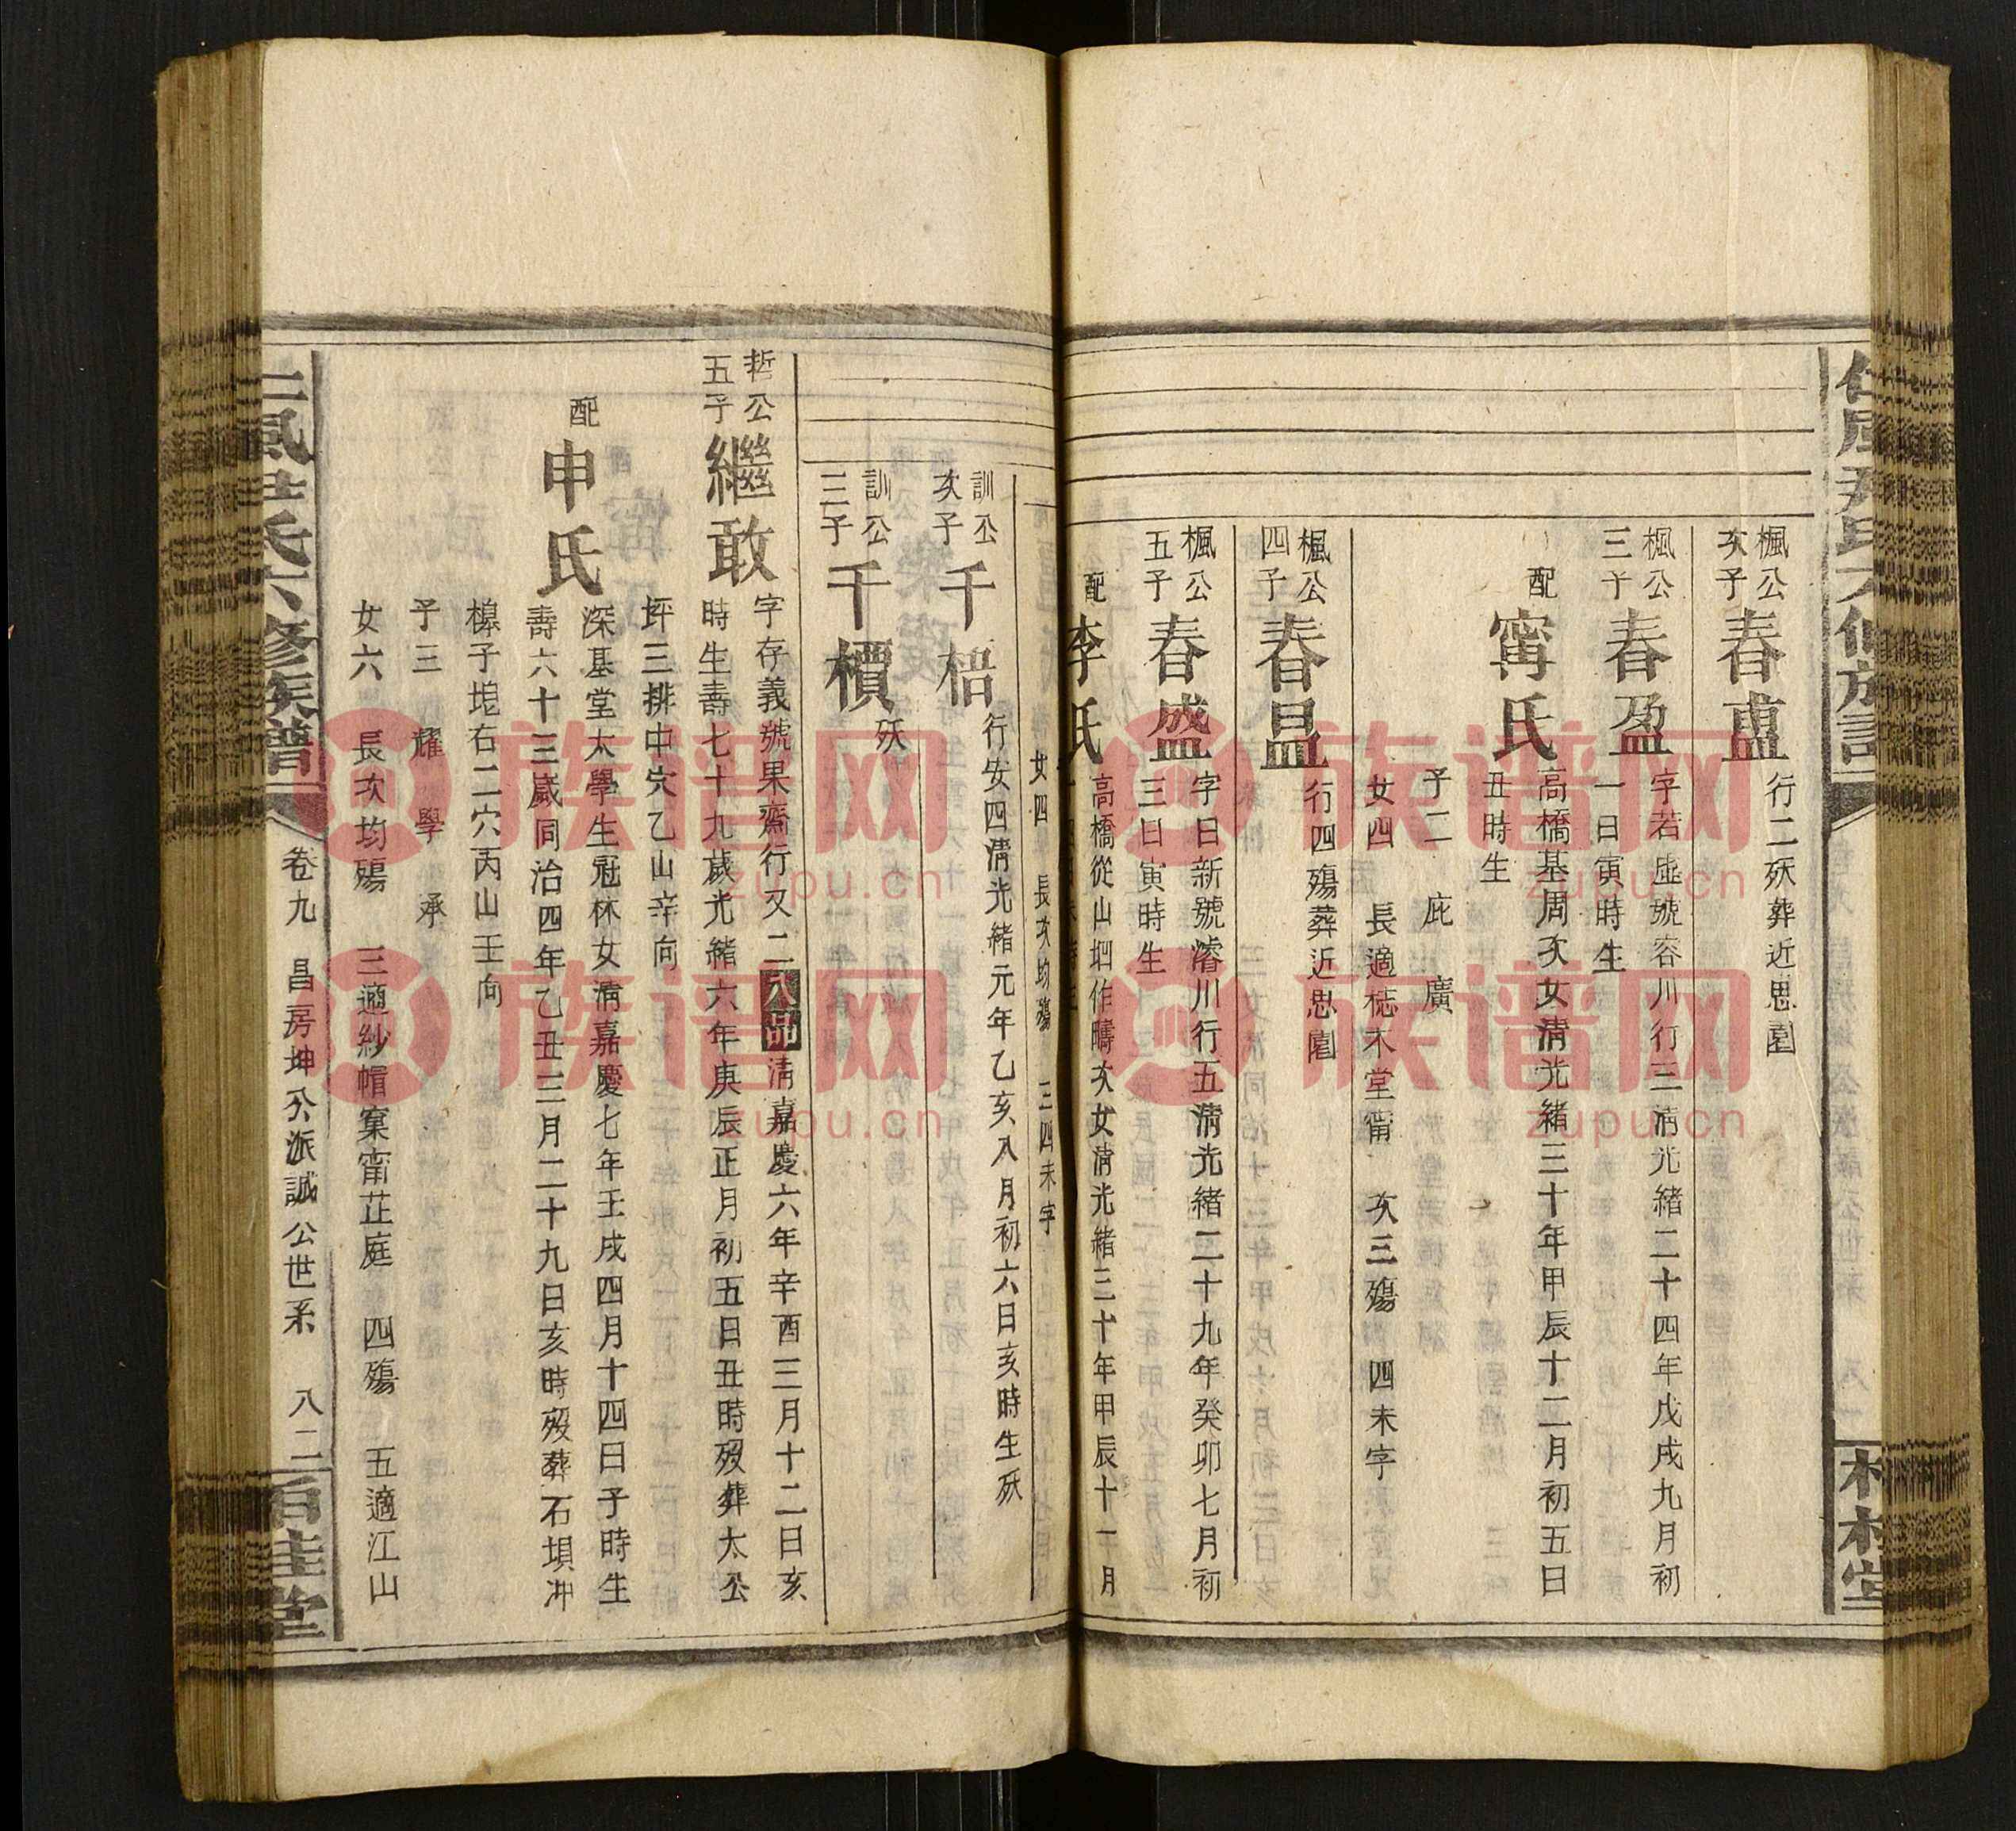 楓公
次子
春蘁
行二殀葬近思園
楓公
三子
春盈
字若虛號容川行三淸光緒二十四年戊戌九月初
一日寅時生
配
甯氏
高橋基周次女淸光緒三十年甲辰十二月初五日
丑時生
子二 庇 廣
女四 長適梽木堂甯 次三殤 四未字
楓公
四子
春昷
行四殤葬近思園
楓公
五子
春盛
字日新號濬川行五淸光緒二十九年癸卯七月初
三日寅時生
配
李氏
高橋從山㘭作疇次女淸光緒三十年甲辰十一月
女四 長次均殤 三四未字
訓公
次子
千梧
行安四淸光緒元年乙亥八月初六日亥時生殀
訓公
三子
千櫝
殀
哲公
五子
繼敢
字存義號果齋行又二八品淸嘉慶六年辛酉三月十二日亥
時生壽七十九歲光緒六年庚辰正月初五日丑時歿葬太公
坪三排中穴乙山辛向
配
申氏
深基堂太學生冠林女淸嘉慶七年壬戌四月十四日子時生
壽六十三歲同治四年乙丑三月二十九日亥時歿葬石埧冲
槔子塊右二穴丙山壬向
子三 耀 學 承
女六 長次均殤 三適紗帽窠甯芷庭 四殤 五適江山
氏六修族譜
卷九 昌房坤公派誠公世系 八二
族谱网
zupu.cn
族谱网
zupu.cn
族谱网
zupu.cn
族谱网
zupu.cn